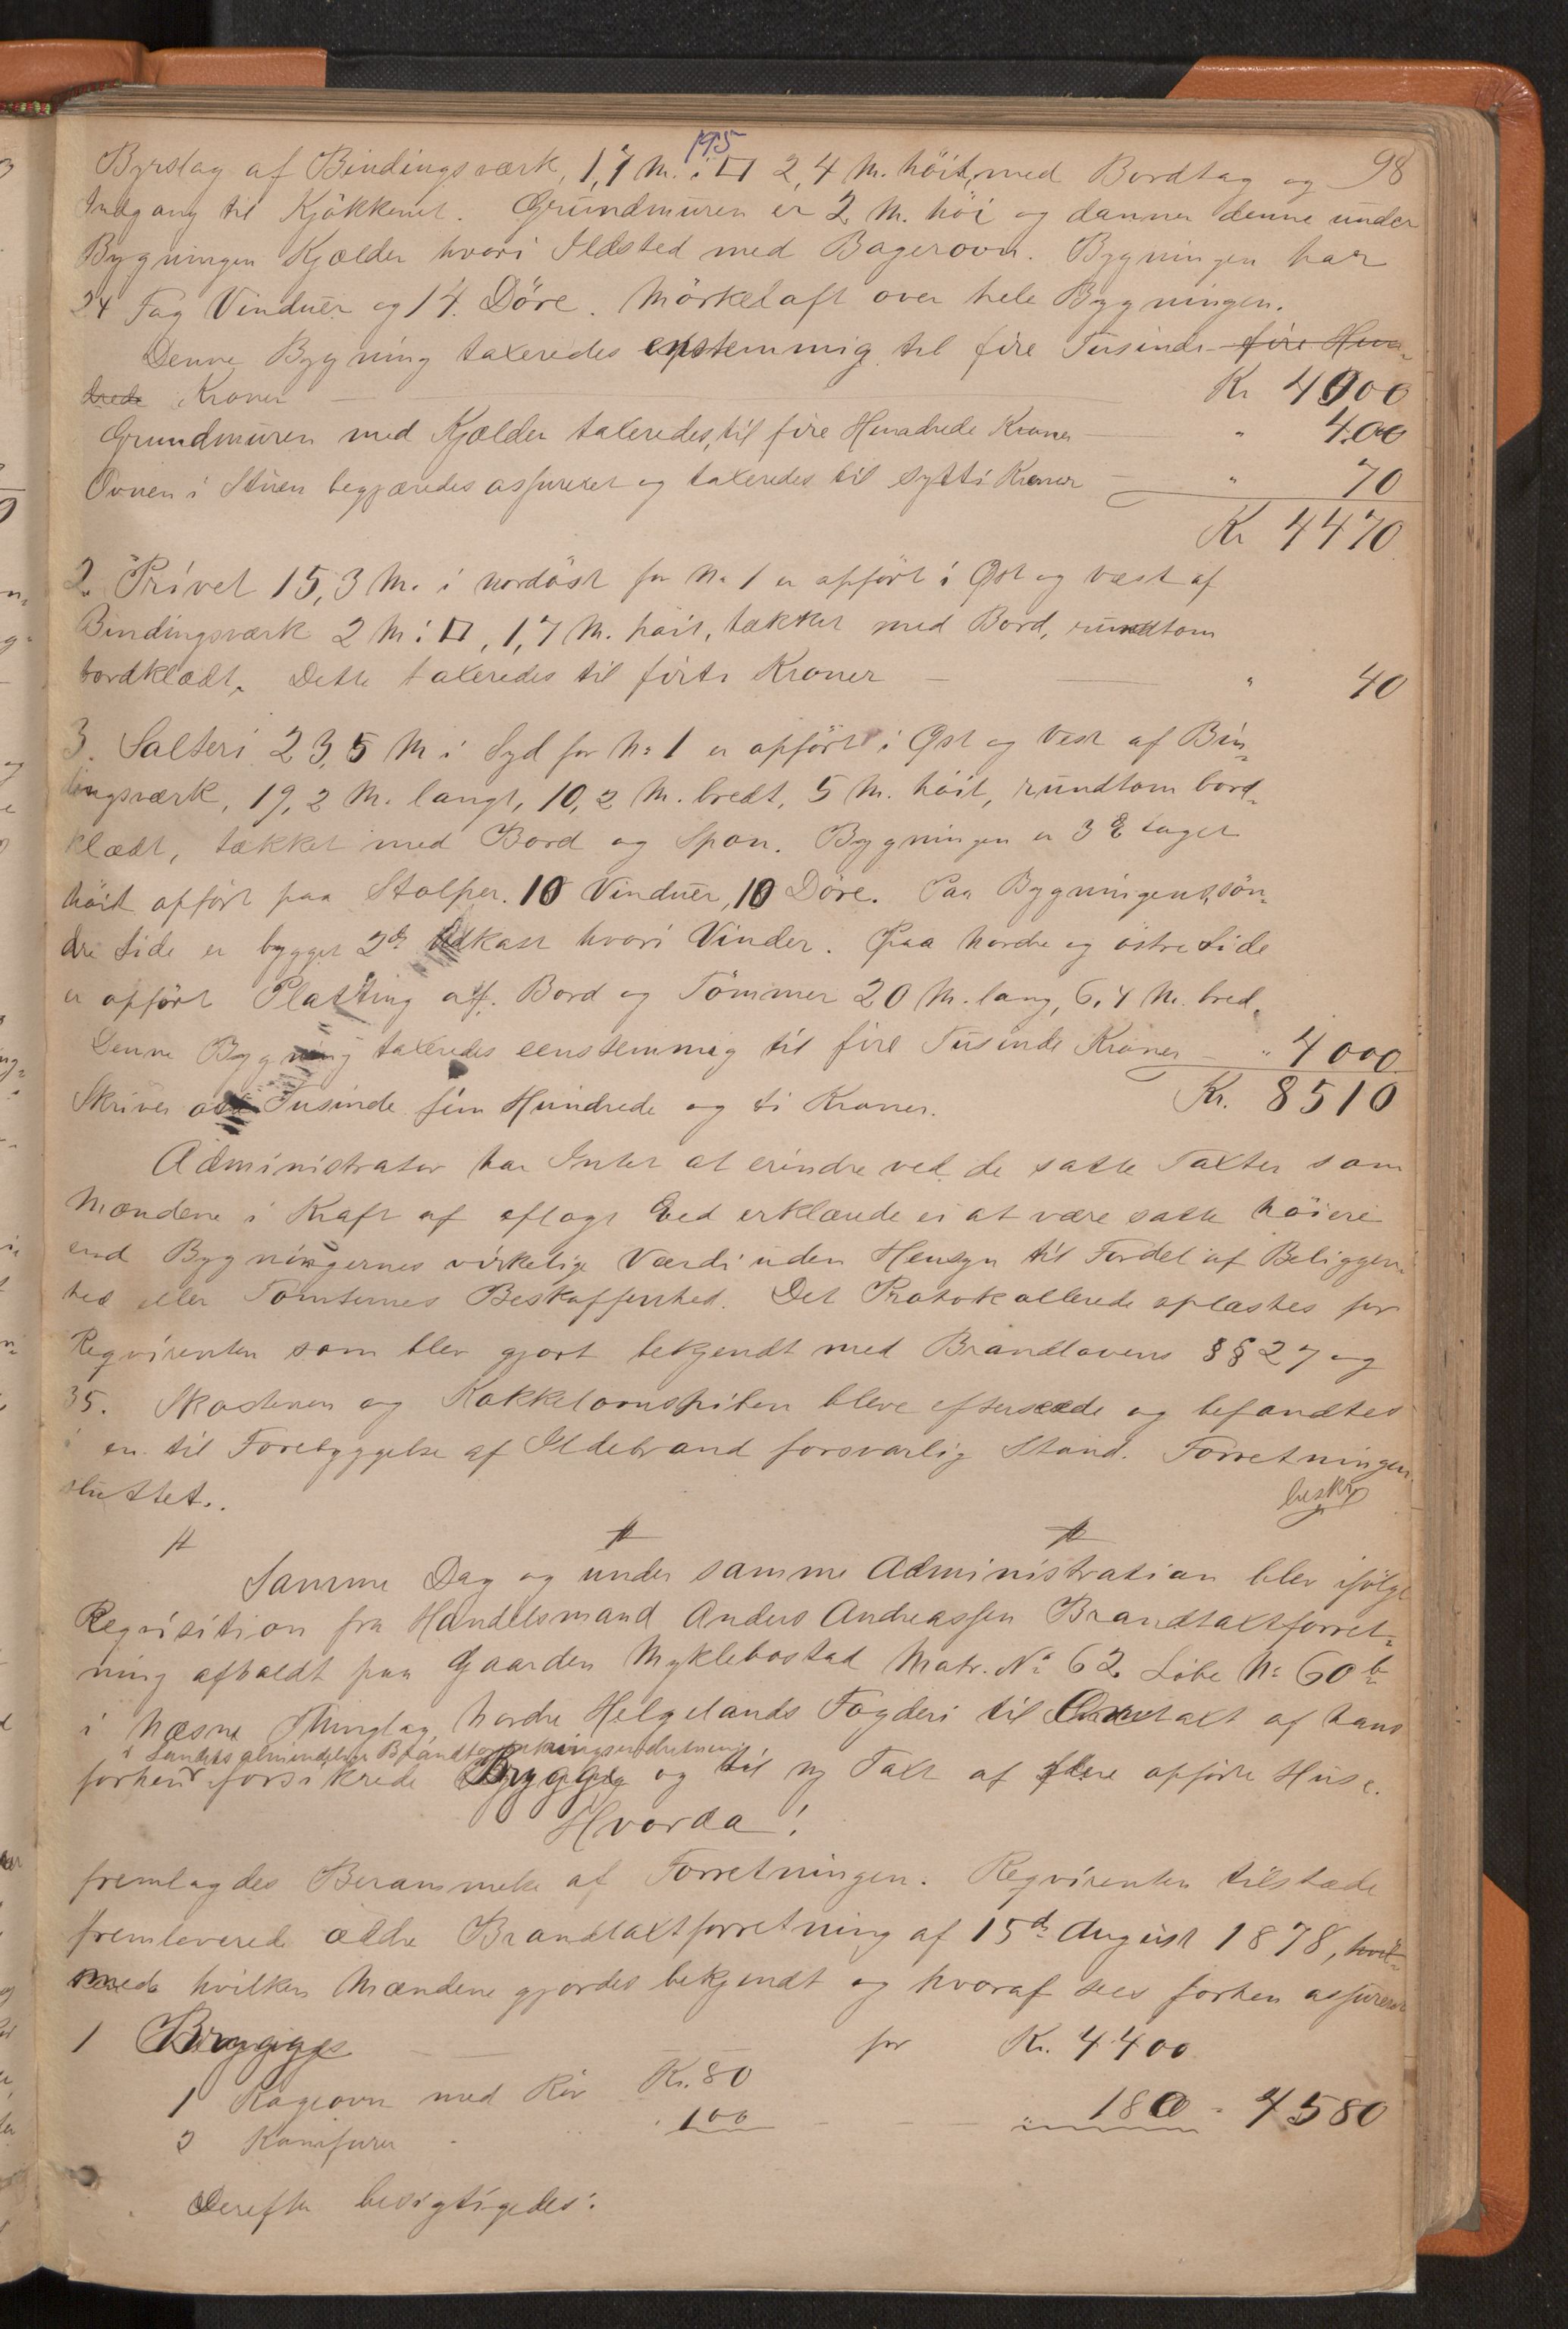 195
98
Byrslag af Bindingsværk, 1,7 M. i □ 2,4 M. höit, med Bordtag og
Indgang til Kjökkenet. Grundmuren er 2 M. höi og danner denne under
Bygningen Kjælder hvori Ildsted med Bagerovn. Bygningen har
24 Fag Vinduer og 14 Döre. Mörkeloft over hele Bygningen.
Denne Bygning taxeredes enstemmig til fire Tusinde fire Hun-
drede Kroner Kr 4000
Grundmuren med Kjælder taxeredes til fire Hundrede Kroner " 400
Ovnen i Stuen begjæredes assureret og taxeredes til sytti Kroner " 70
Kr 4470
2. Privet 15,3 M. i nordöst for No 1 er opfört i Öst og Vest af
Bindingsværk 2 M i □, 1,7 M. höit, tækket med Bord, rundtom
bordklædt. Dette taxeredes til firti Kroner " 40
3. Salteri 23,5 M i Syd for No 1 er opfört i Öst og Vest af Bin-
dingsværk, 19,2 M. langt, 10,2 M. bredt, 5 M. höit, rundtom bord-
klædt, tækket med Bord og Spon. Bygningen er 3 Etager
höit opfört paa Stolper. 10 Vinduer, 10 Döre. Paa Bygningens sön-
dre Side er bygget 2de Udkast hvori Vinder. Paa nordre og östre Side
er opfört Platting af Bord og Tömmer 20 M. lang, 6,4 M. bred.
Denne Bygning taxeredes eenstemmig til fire Tusinde Kroner " 4000
Skriver otte Tusinde fem Hundrede og ti Kroner. Kr. 8510
Administrator har Intet at erindre ved de satte Taxter som
Mændene i Kraft af aflagt Eed erklærede ei at være satte höiere
end Bygningernes virkelige Værdi uden Hensyn til Fordel af Beliggen-
hed eller Tomternes Beskaffenhed. Det Protokollerede oplæstes for
Reqvirenten som blev gjort bekjendt med Brandlovens §§ 27 og
35. Skorstenen og Kakkelovnspiben bleve efterseede og befandtes
i en til Forebyggelse af Ildebrand forsvarlig Stand. Forretningen
sluttet.
beskr
Samme Dag og under samme Administration blev ifölge
Reqvisition fra Handelsmand Anders Andreassen Brandtaxtforret-
ning afholdt paa Gaarden Myklebostad Matr. No 62 Löbe No 60 b
i Næsne Thinglag, Nordre Helgelands Fogderi til Omtaxt af hans
i Landets almindelige Brandforsikringsindretning
forhen forsikrede Brygge og til ny Taxt af flere opförte Huse.
Hvorda!
fremlagdes Berammelse af Forretningen. Reqvirenten tilstæde
fremleverede ældre Brandtaxtforretning af 15de August 1878, hvil-
med hvilken Mændene gjordes bekjendt og hvoraf sees forhen assureret
1 Brygge for Kr. 4400
1 Kogeovn med Rör Kr. 80
2 Komfurer 100 " 180 - 4580
Derefter besigtigedes: